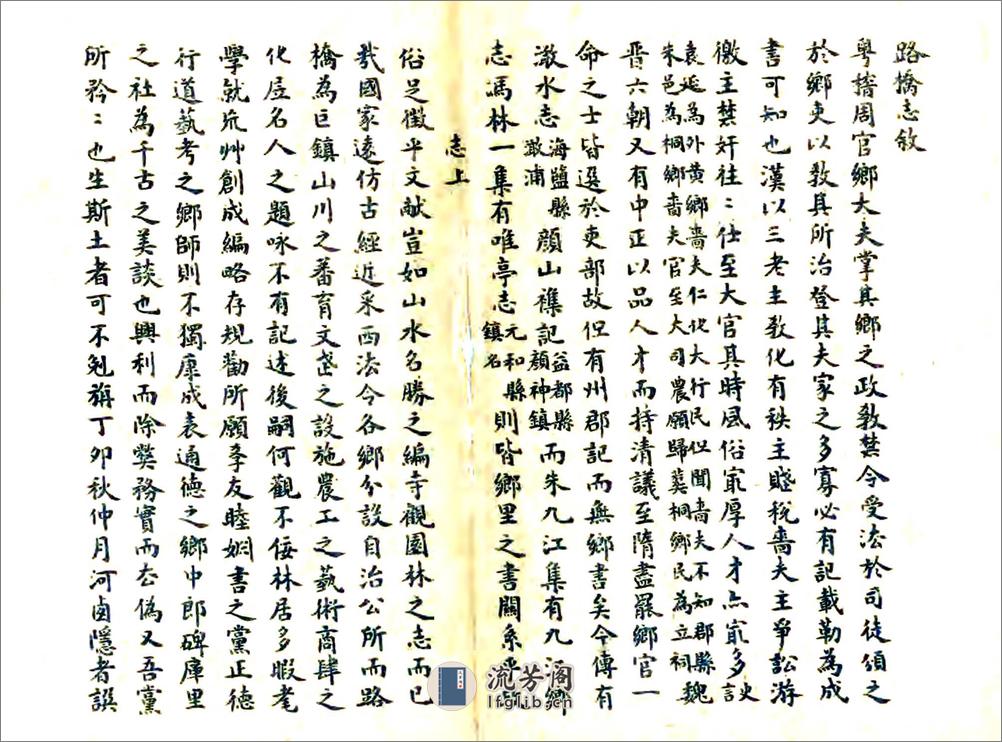 路橋志敘
粤𥡴周官鄉大夫掌其鄉之政教禁令受法於司徒頒之
於鄉吏以教其所治登其夫家之多寡必有記載勒為成
書可知也漢以三老主教化有秩主賦稅嗇夫主爭訟游
徼主禁奸往〻仕至大官其時風俗㝡厚人才亦㝡多
袁延為外黃鄉嗇夫仁化大行民但聞嗇夫不知郡縣
朱邑為桐鄉嗇夫官至大司農願歸葬桐鄉民為立祠
魏
晉六朝又有中正以品人才而持清議至隋盡罷鄉官一
命之士皆選於吏部故但有州郡記而無鄉書矣今傳有
澉水志海鹽縣澉浦顏山襍記益都縣顏神鎮而朱九江集有九江鄉
志馮林一集有唯亭志元和縣鎮名則皆鄉里之書關系
志上
俗足徵乎文献豈如山水名勝之編寺觀園林之志而已
哉國家遠仿古經近采西法令各鄉分設自治公所而路
橋為巨鎮山川之蕃育文武之設施農工之藝術商肆之
化居名人之題咏不有記述後嗣何觀不佞林居多暇耄
學就荒艸創成編略存規勸所願孝友睦婣書之黨正德
行道藝考之鄉師則不獨康成表通德之鄉中郎碑庫里
之社為千古之美談也興利而除獘務實而厺偽又吾黨
所矜〻也生斯土者可不勉旃丁卯秋仲月河鹵隱者譔
流芳阁
lfglib.cn